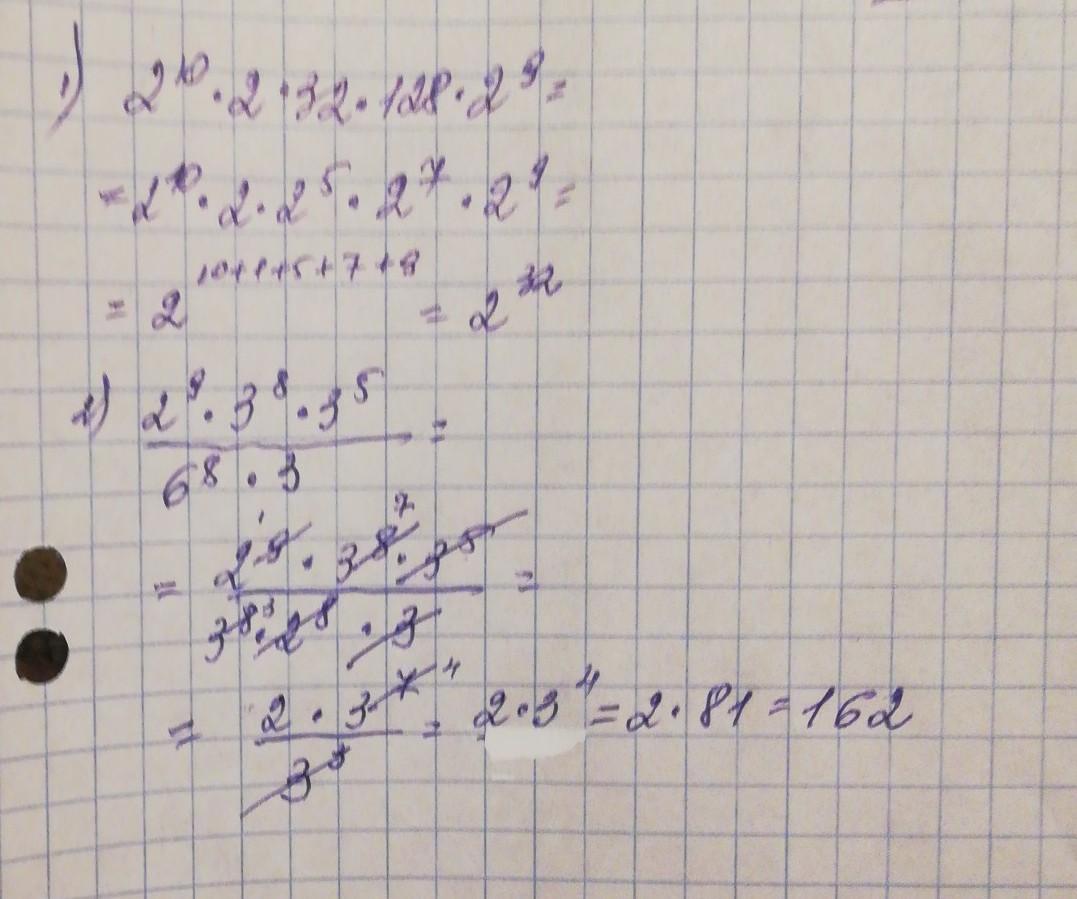 1) 2¹⁰ · 2 · 32 · 128 · 2⁹ =
= 2¹⁰ · 2 · 2⁵ · 2⁷ · 2⁹ =
= 2¹⁰⁺¹⁺⁵⁺⁷⁺⁹ = 2³²
2) 2⁹ · 3⁸ · 3⁵ =
6⁸ · 3
= 2⁹ ¹ · 3⁸ ⁷ · 3⁵ =
3⁸ ³ · 2⁸ · 3
= 2 · 3⁷ ⁴ = 2 · 3⁴ = 2 · 81 = 162
3³